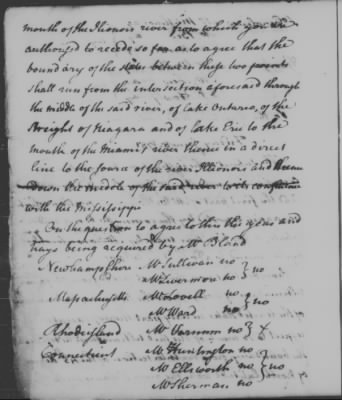 mouth of the Illionois river from which you are
authorized to recede so far as to agree that the
boundary of the states between these two points
shall run from the intersection aforesaid through
the middle of the said river, of lake Ontario, of the
Streight of Niagara and of lake Erie to the
mouth of the Miami's river thence in a direct
line to the source of the river Illionois and thence
down the middle of the said river to its confluence
with the Mississippi
On the question to agree to this the yeas and
nays being required by Mr Bland
Newhampshire Mr Sullivan no } no
Mr Livermore no
Massachusetts Mr Lovell no } no
Mr Ward no
Rhodeisland Mr Varnum no } x
Connecticut Mr Huntington no } no
Mr Ellsworth no
Mr Sherman no